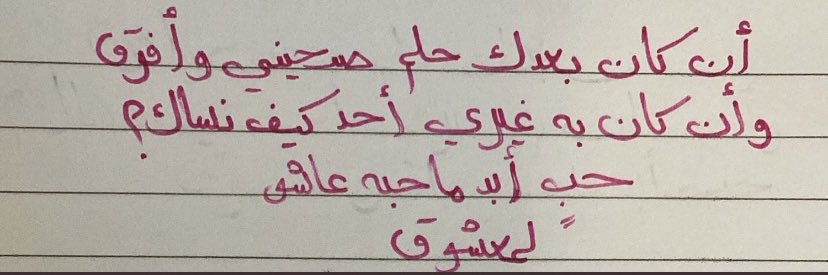 أن كان بعدك حلم صحيني وأفوق
وأن كان به غيري أحد كيف نساك؟
حبٍ أبد ما حبه عاشق
لمعشوق